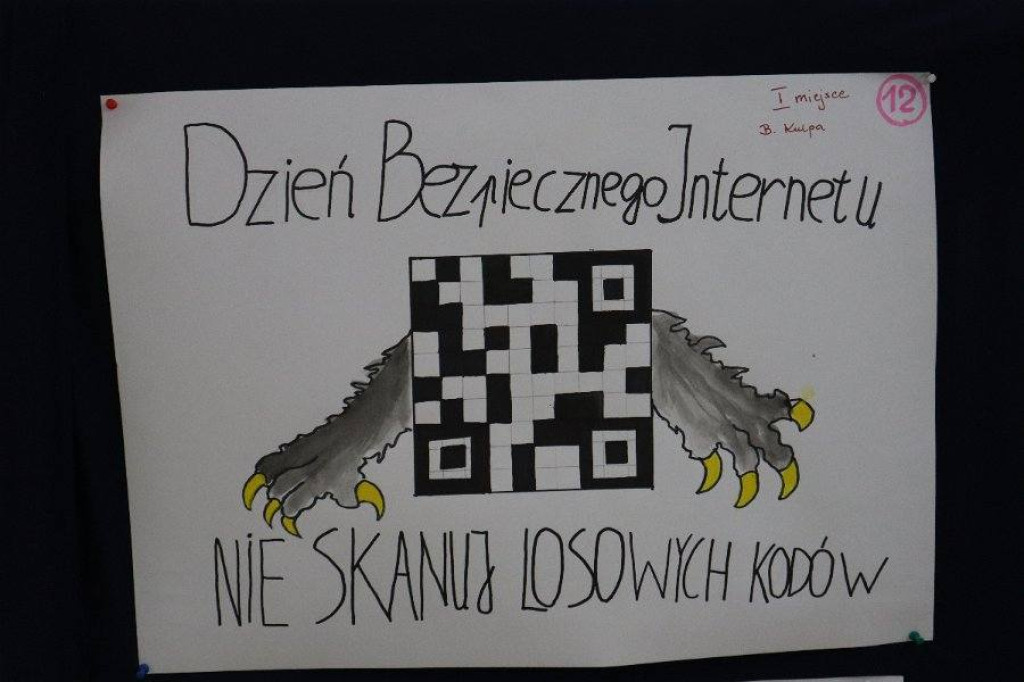 I miejsce
12
B. Kulpa
Dzień Bezpiecznego Internetu
NIE SKANUJ LOSOWYCH KODÓW